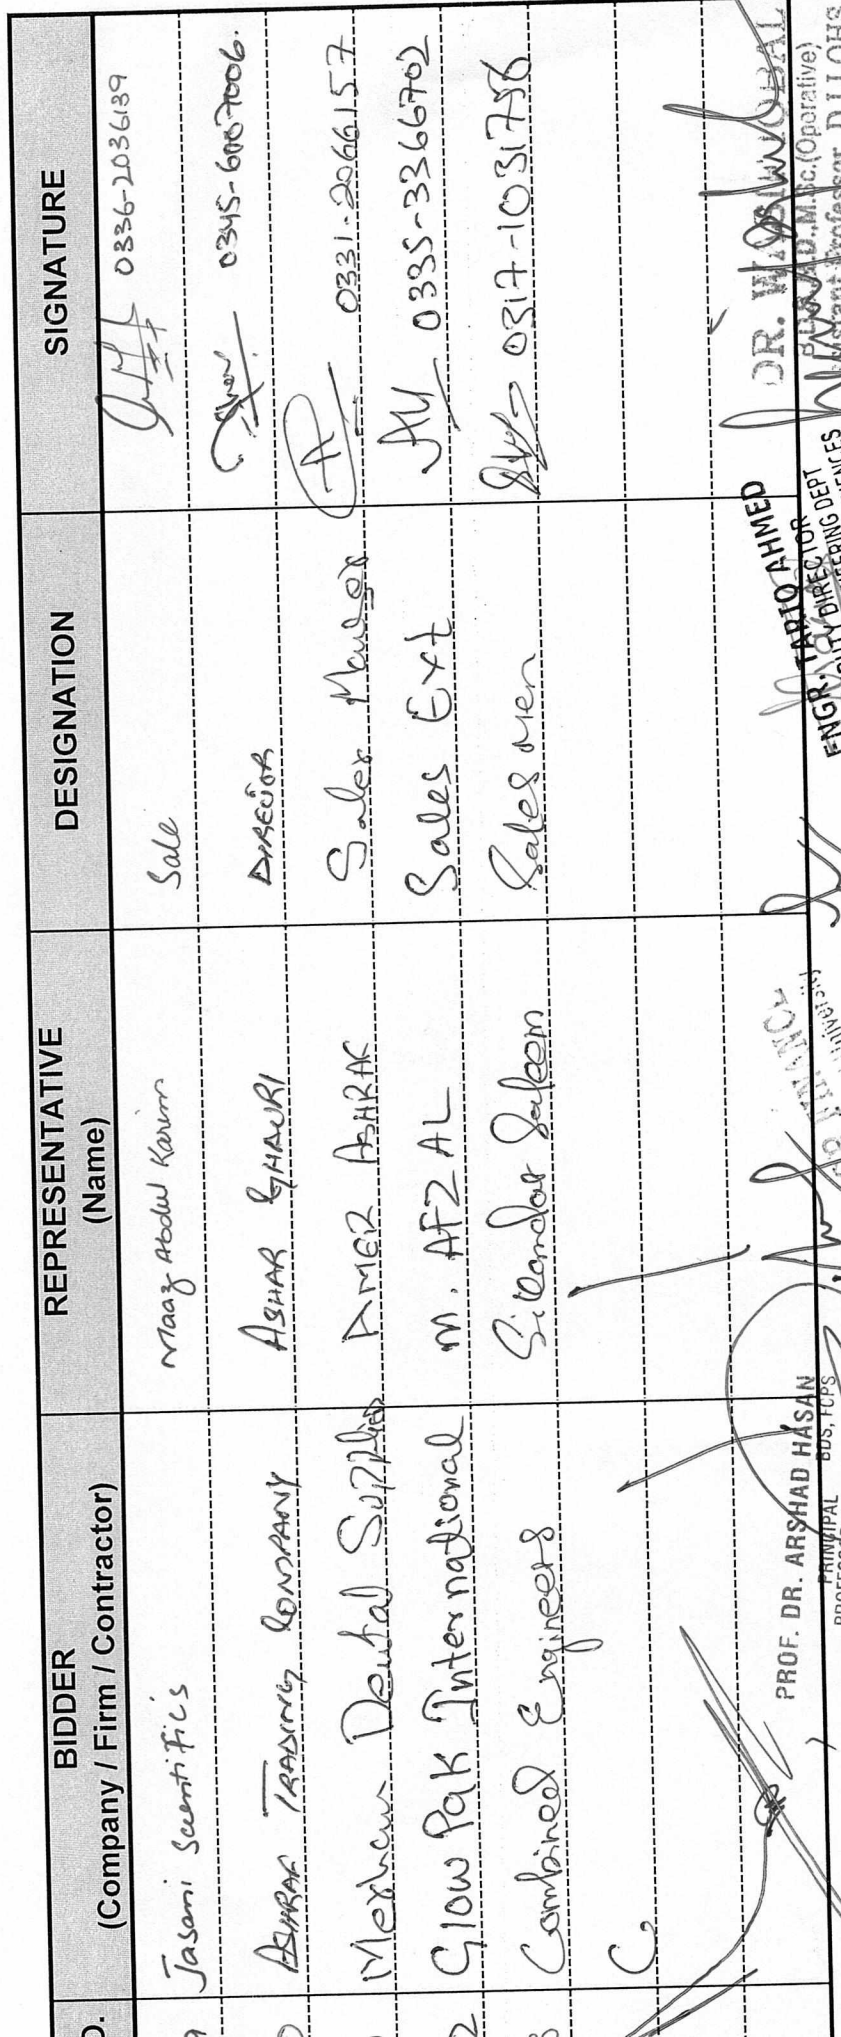 BIDDER
(Company / Firm / Contractor)
REPRESENTATIVE
(Name)
DESIGNATION
SIGNATURE
Jasani Scientifics
Maaz Abdul Karim
Sale
0336-2036139
ASHRAF TRADING COMPANY
ASHAR GHAURI
DIRECTOR
Dental Supplies
AMER ASHRAF
Sales
0331-2066157
Glow Pak International
M. AFZAL
Sales Ext
0335-3366702
Combined Engineers
Sikandar Saleem
Sales Men
0317-1031756
PROF. DR. ARSHAD HASAN
PRINCIPAL BDS, FCPS
University
ENGR. TARIQ AHMED
DIRECTOR
DR.
M.Sc.(Operative)
Professor